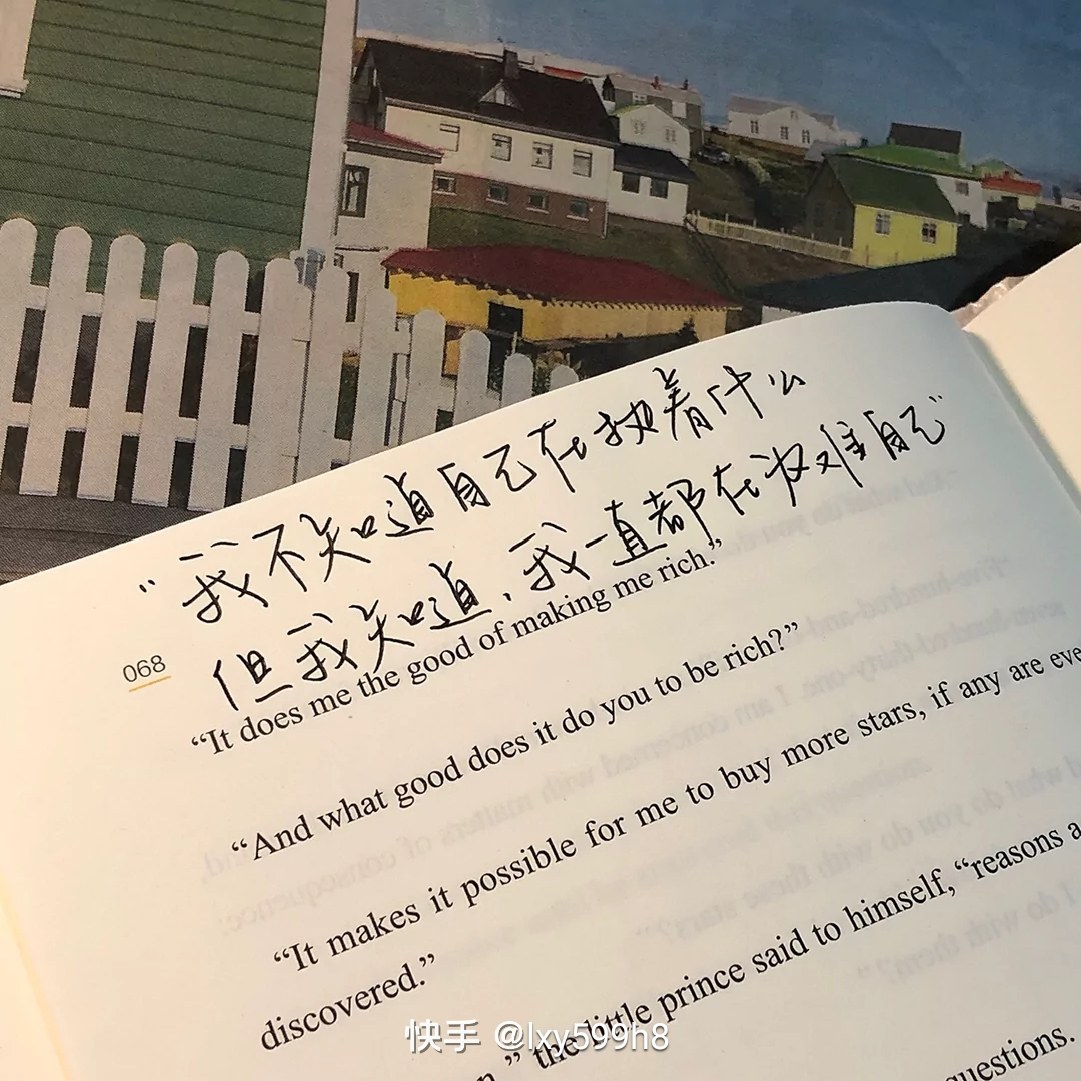 “我不知道自己在执着什么
但我知道，我一直都在为难自己”
068
“It does me the good of making me rich.”
“And what good does it do you to be rich?”
“It makes it possible for me to buy more stars, if any are eve
discovered.”
” the little prince said to himself, “reasons a
questions.
快手 @lxy599h8